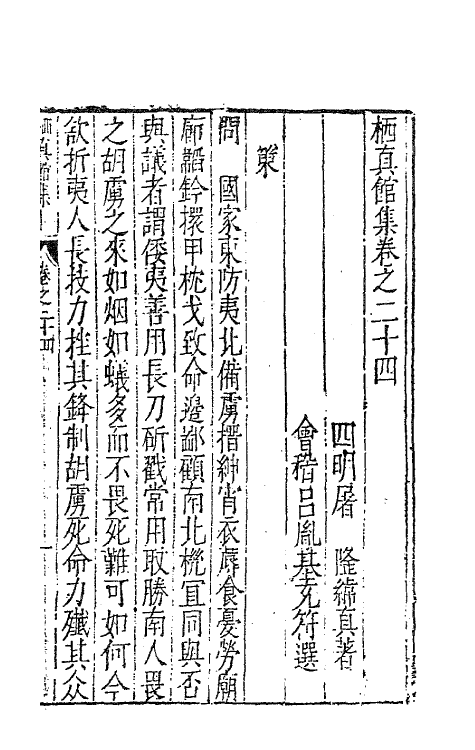 栖真館集卷之二十四
四明屠　隆緯真著
會稽呂胤基允符選
策
問　國家東防夷北備虜搢紳宵衣蓐食憂勞廟
廊韜鈐擐甲枕戈致命邊鄙顧南北機冝同與否
與議者謂倭夷善用長刀斫戳常用取勝南人畏
之胡虜之來如烟如蟻多而不畏死難可如何今
欲折夷人長技力挫其鋒制胡虜死命力殲其众
栖真館集　卷之二十四　一